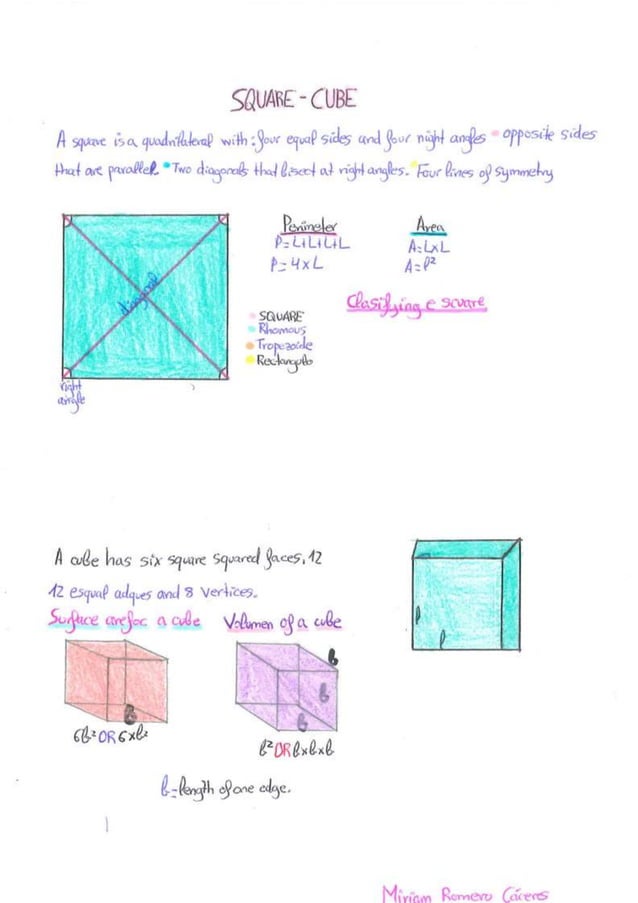 SQUARE - CUBE
A square is a quadrilateral with: four equal sides and four right angles • opposite sides
that are parallel. • Two diagonals that bisect at right angles. • Four lines of symmetry
Perimeter
P=L+L+L+L
P=4xL
Area
A=LxL
A=l²
Clasifying e scuare
diagonal
• SQUARE
• Rhomous
• Tropezoide
• Rectangulo
right
angle
A cube has six square squared faces, 12
12 esqual adques and 8 vertices.
Surface arefoc a cube
Volumen of a cube
l
l
b
b
b
b
6b² OR 6xb²
b² OR bxbxb
b=length of one edge.
Miriam Romero Cáceres